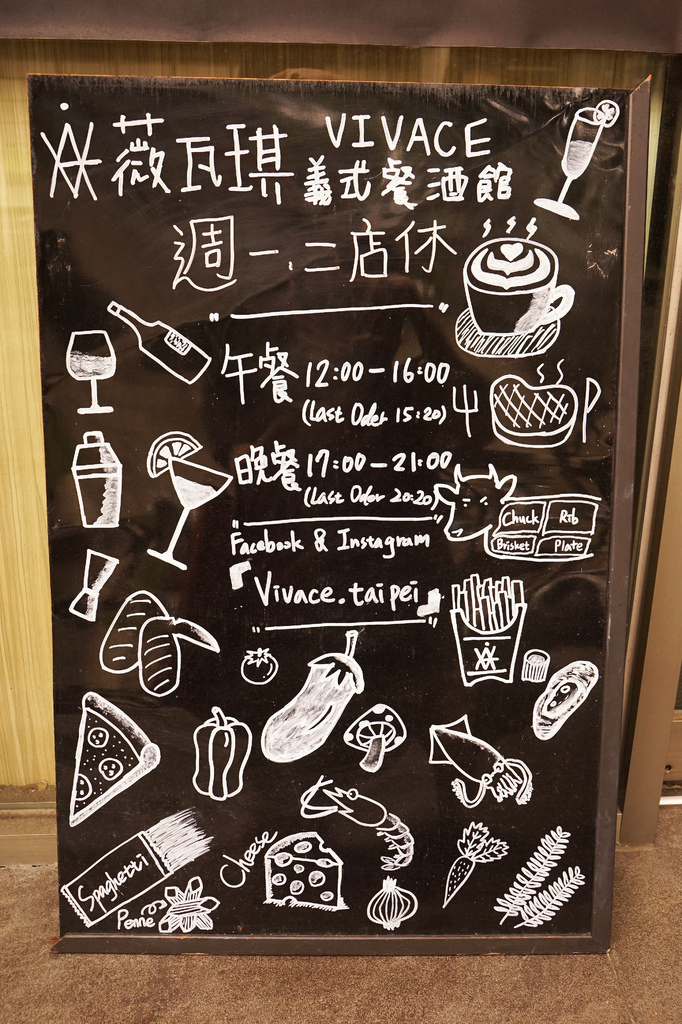 薇瓦琪 VIVACE
義式餐酒館
週一、二店休
午餐 12:00-16:00
(Last Oder 15:20)
晚餐 17:00-21:00
(Last Oder 20:20)
Chuck Rib
Brisket Plate
Facebook & Instagram
「Vivace.taipei」
Spaghetti
Penne
Cheese